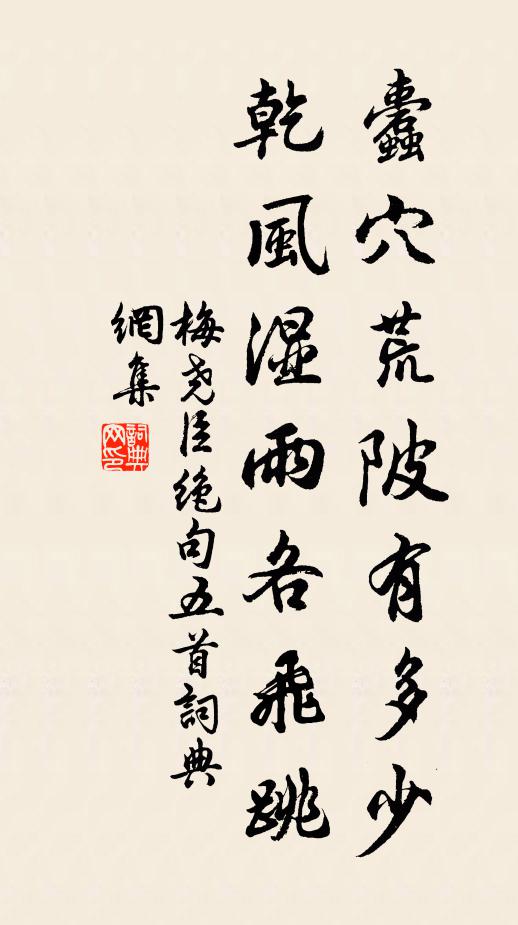 蠹穴荒陂有多少
乾風湿雨各飛跳
梅尧臣絶句五首詞典
網集
詞典
网印